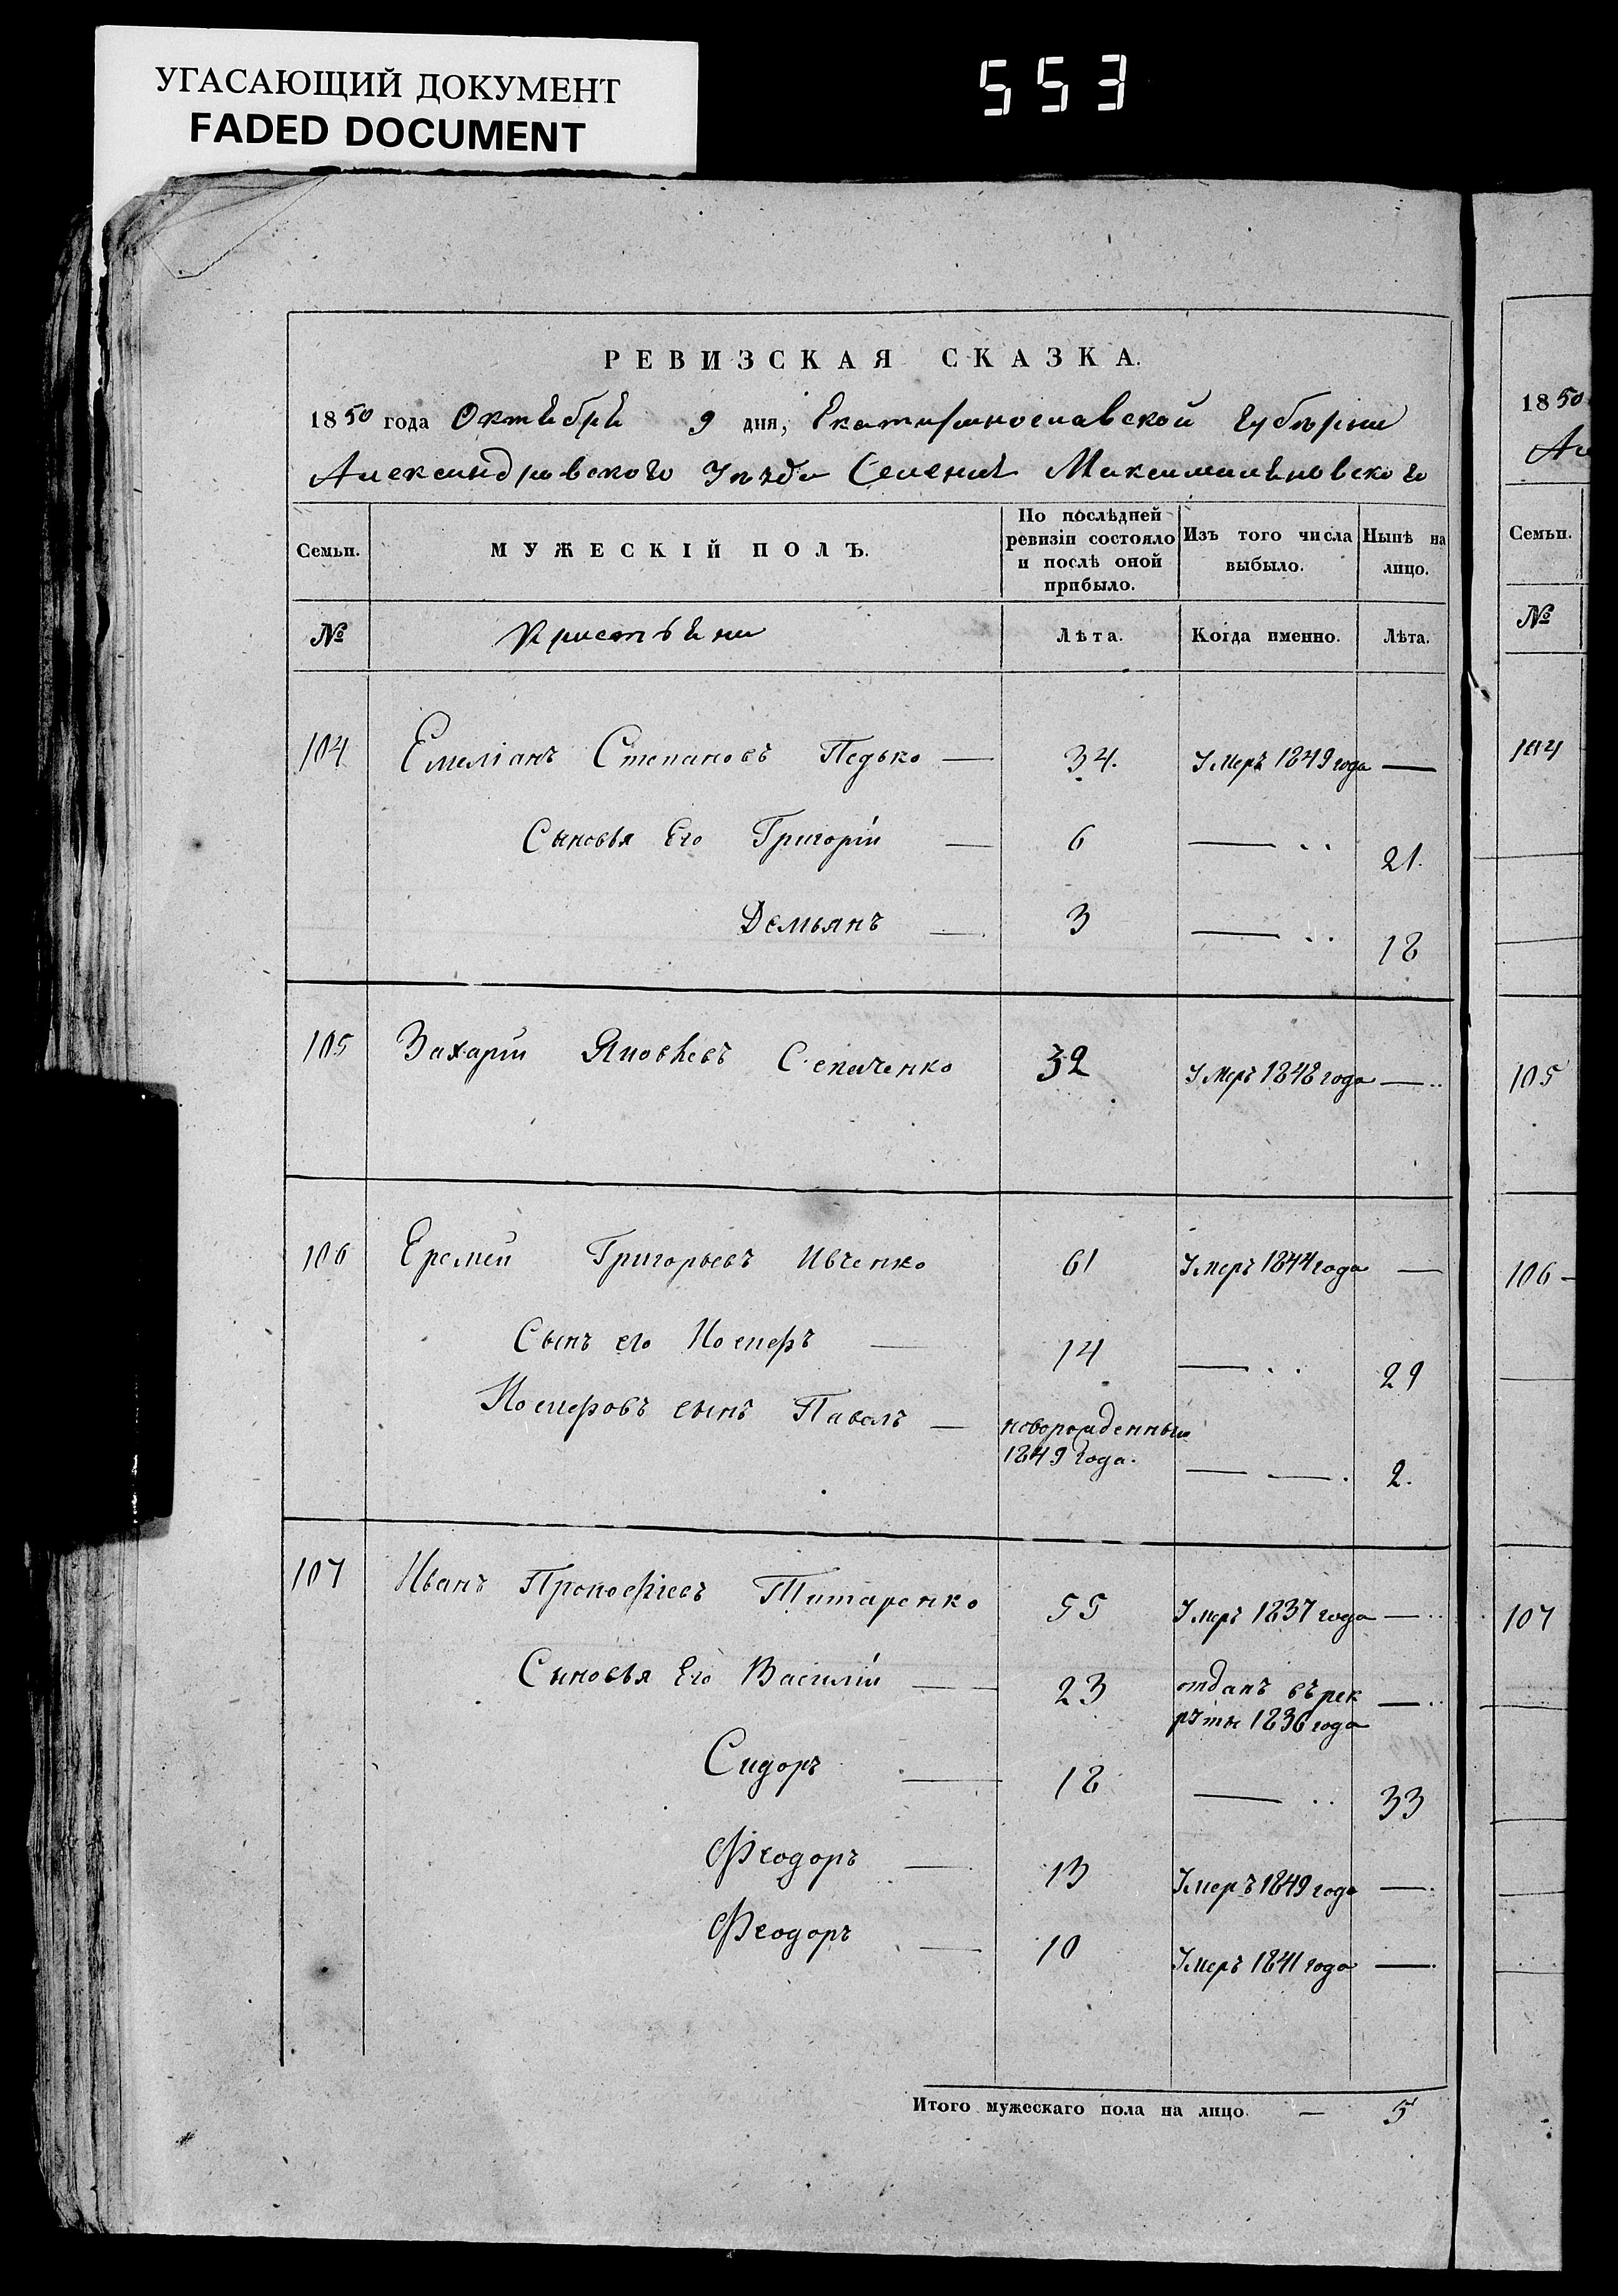 УГАСАЮЩИЙ ДОКУМЕНТ
FADED DOCUMENT
553
РЕВИЗСКАЯ СКАЗКА.
1850 года Октября 9 дня, Екатеринославской Губернии
Александровского Уезда Селения Максимильяновского
Семьи. МУЖЕСКІЙ ПОЛЪ. По послѣдней ревизіи состояло и послѣ оной прибыло. Изъ того числа выбыло. Нынѣ на лицо.
№ Кристьяни Лѣта. Когда именно. Лѣта.
104 Емеліанъ Степановъ Педько — 34. Умеръ 1849 года —
Сыновья Его Григорій — 6 — . . 21.
Демьянъ — 3 — . . 18
105 Захарій Яковлевъ 32 Умеръ 1848 года — ..
106 Еремей Григорьевъ Ивченко 61 Умеръ 1844 года —
Сынъ его Иосифъ — 14 — . . 29
Иосифовъ сынъ Павелъ — новорожденный
1849 года. — — . 2.
107 Иванъ Прокофіевъ Титаренко 55 Умеръ 1837 года — ..
Сыновья Его Василій — 23 отданъ въ рек
руты 1836 года — ..
Сидоръ — 18 — . . 33
Феодоръ — 13 Умеръ 1849 года —.
Феодоръ — 10 Умеръ 1841 года —.
Итого мужескаго пола на лицо. — 5
1850
Ал
Семьи.
№
104
105
106 -
107